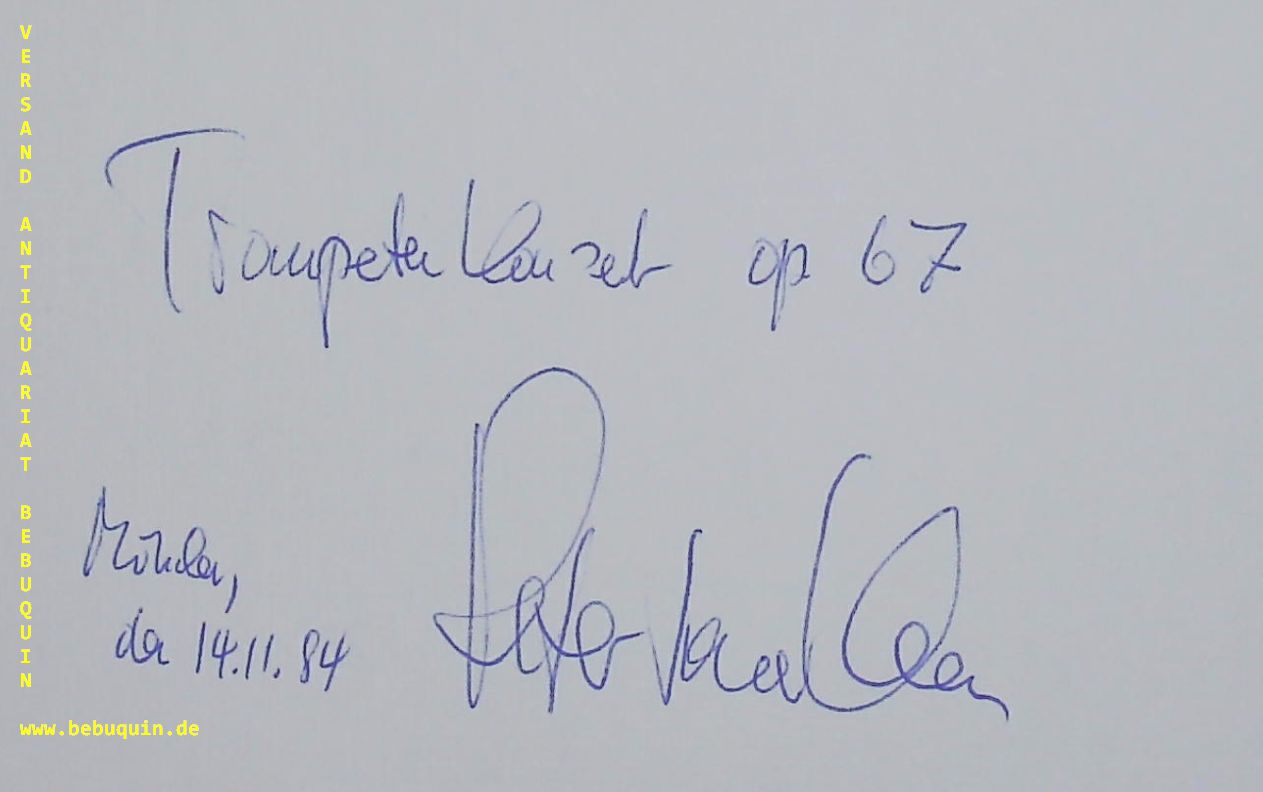 VERSAND ANTIQUARIAT BEBUQUIN
Trompetenkonzert op 67
Peter Jona Korn
München,
den 14.11.84
www.bebuquin.de